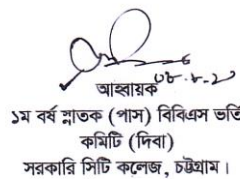 আহ্বায়ক
১ম বর্ষ স্নাতক (পাস) বিবিএস ভর্তি
কমিটি (দিবা)
সরকারি সিটি কলেজ, চট্টগ্রাম।